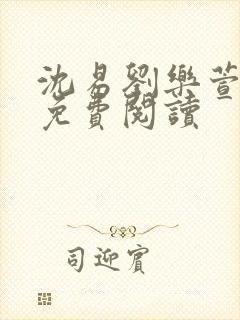 沈易劉樂萱
免費閱讀
司迎賓